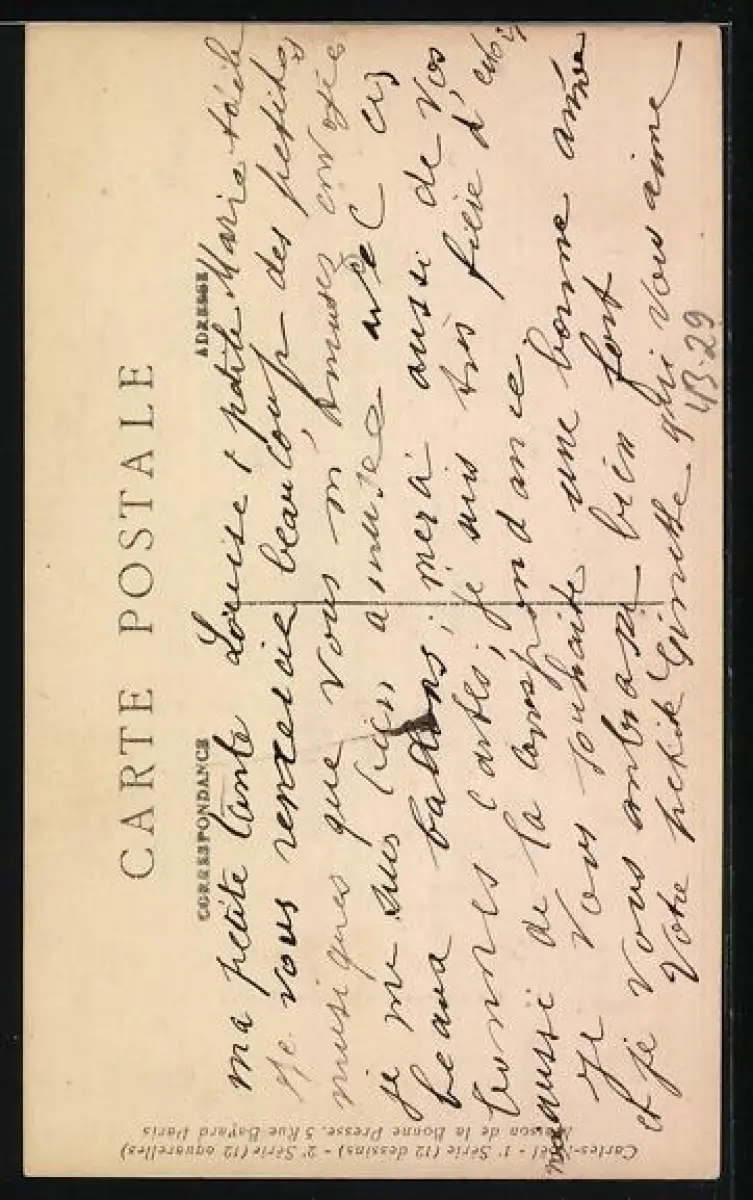 CARTE POSTALE
CORRESPONDANCE
ADRESSE
ma petite tante Louise & petite Marie
Je vous remercie beaucoup des petites
musiques que vous m'
je me suis bien amusée avec
beaux ballons; merci aussi de vos
bonnes cartes; je suis très fière d'
aussi de la correspondance
Je vous souhaite une bonne année
et je vous embrasse bien fort
Votre petite Ginette qui vous aime
43-29
Cartes-Noël - 1e Série (12 dessins) - 2e Série (12 aquarelles)
Maison de la Bonne Presse, 5 Rue Bayard Paris